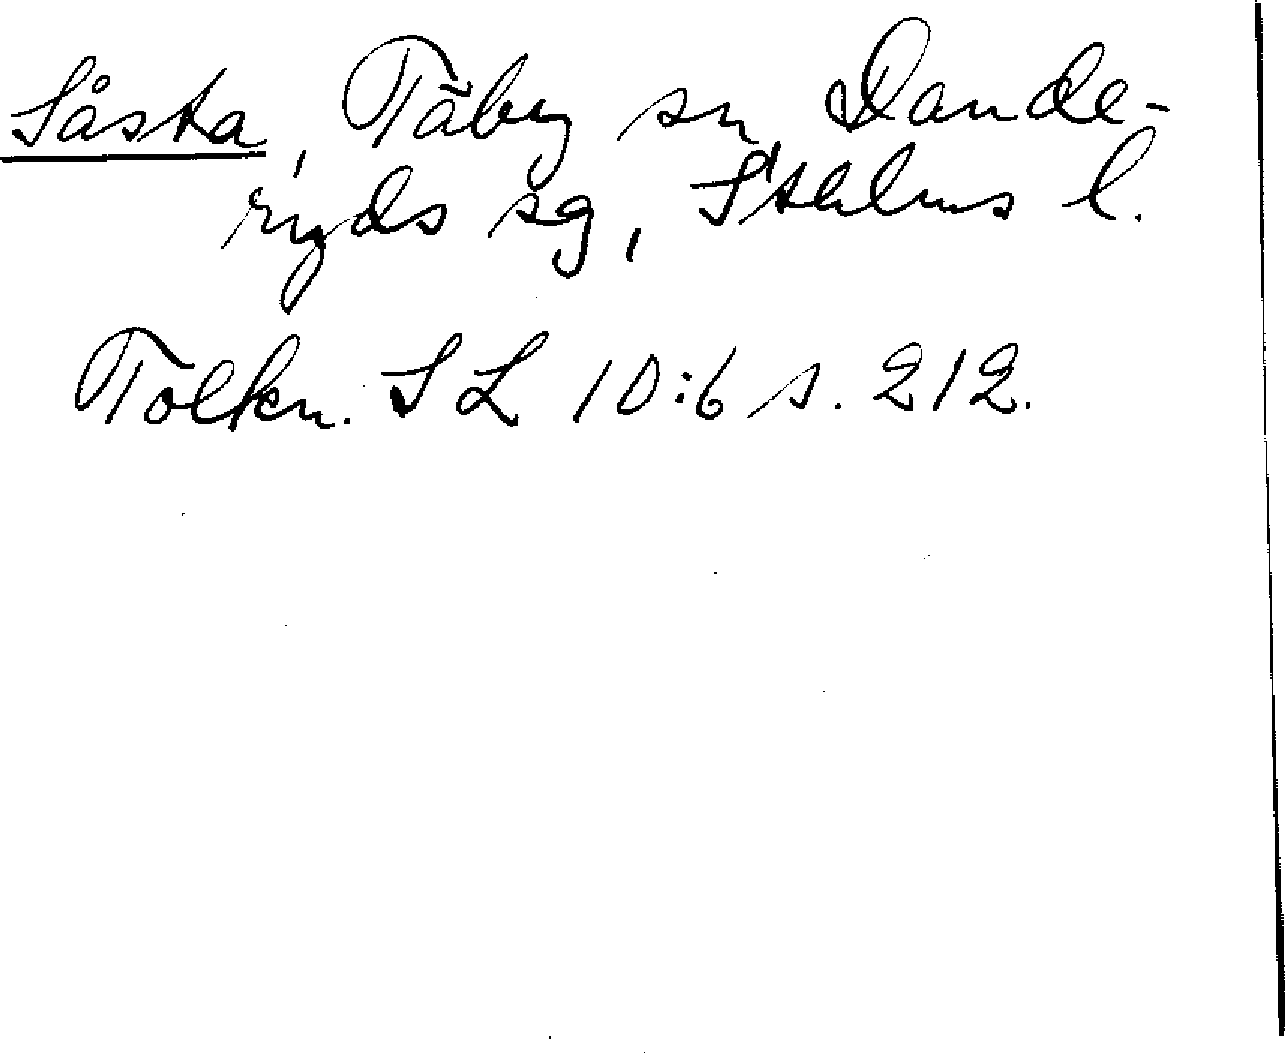 Såsta, Täby sn, Dande-
ryds sg, Sthlms l.
Tolkn. SL 10:6 s. 212.